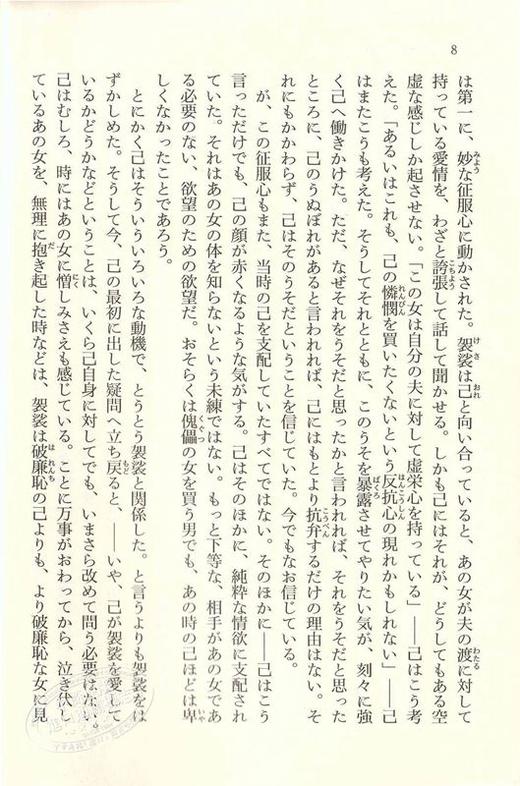 8
は第一に、妙な征服心に動かされた。袈裟は己と向い合っていると、あの女が夫の渡に対して
持っている愛情を、わざと誇張して話して聞かせる。しかも己にはそれが、どうしてもある空
虚な感じしか起させない。「この女は自分の夫に対して虚栄心を持っている」――己はこう考
えた。「あるいはこれも、己の憐憫を買いたくないという反抗心の現れかもしれない」――己
はまたこうも考えた。そうしてそれとともに、このうそを暴露させてやりたい気が、刻々に強
く己へ働きかけた。ただ、なぜそれをうそだと思ったかと言われれば、それをうそだと思った
ところに、己のうぬぼれがあると言われれば、己にはもとより抗弁するだけの理由はない。そ
れにもかかわらず、己はそのうそだということを信じていた。今でもなお信じている。
が、この征服心もまた、当時の己を支配していたすべてではない。そのほかに――己はこう
言っただけでも、己の顔が赤くなるような気がする。己はそのほかに、純粋な情欲に支配され
ていた。それはあの女の体を知らないという未練ではない。もっと下等な、相手があの女であ
る必要のない、欲望のための欲望だ。おそらくは傀儡の女を買う男でも、あの時の己ほどは卑
しくなかったことであろう。
とにかく己はそういういろいろな動機で、とうとう袈裟と関係した。と言うよりも袈裟をは
ずかしめた。そうして今、己の最初に出した疑問へ立ち戻ると、――いや、己が袈裟を愛して
いるかどうかなどということは、いくら己自身に対してでも、いまさら改めて問う必要はない。
己はむしろ、時にはあの女に憎しみさえも感じている。ことに万事がおわってから、泣き伏し
ているあの女を、無理に抱き起した時などは、袈裟は破廉恥の己よりも、より破廉恥な女に見